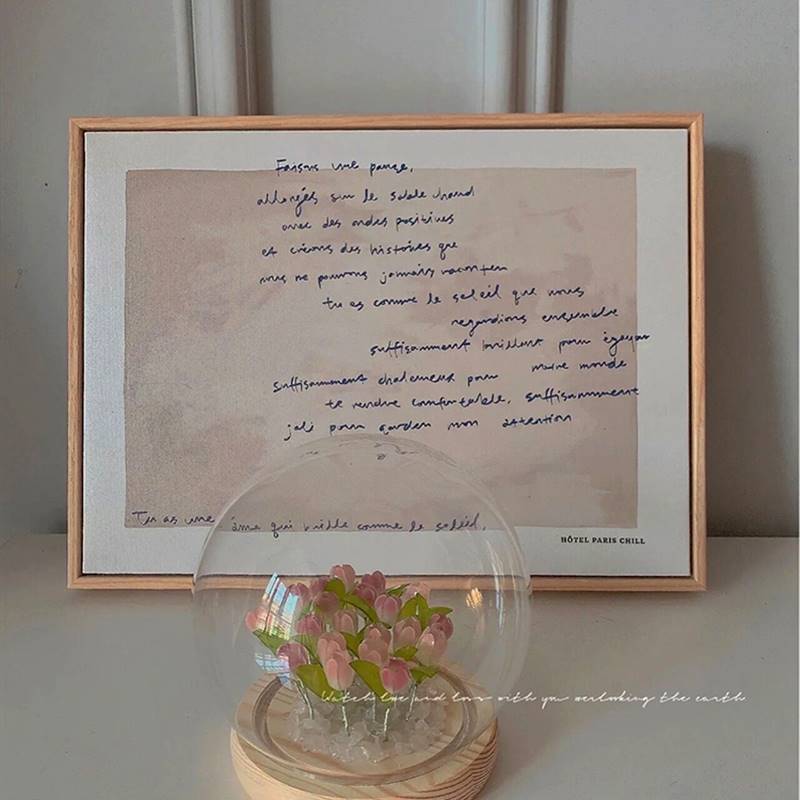 Faisons une pause,
allongés sur le sable chaud
avec des ondes positives
et créons des histoires que
nous ne pouvons jamais raconter
tu es comme le soleil que nous
regardions ensemble
suffisamment brillant pour égayer
mon monde
suffisamment chaleureux pour
te rendre confortable, suffisamment
joli pour garder mon attention
Tu as une âme qui brille comme le soleil.
HÔTEL PARIS CHILL
Watch love and love with you overlooking the earth